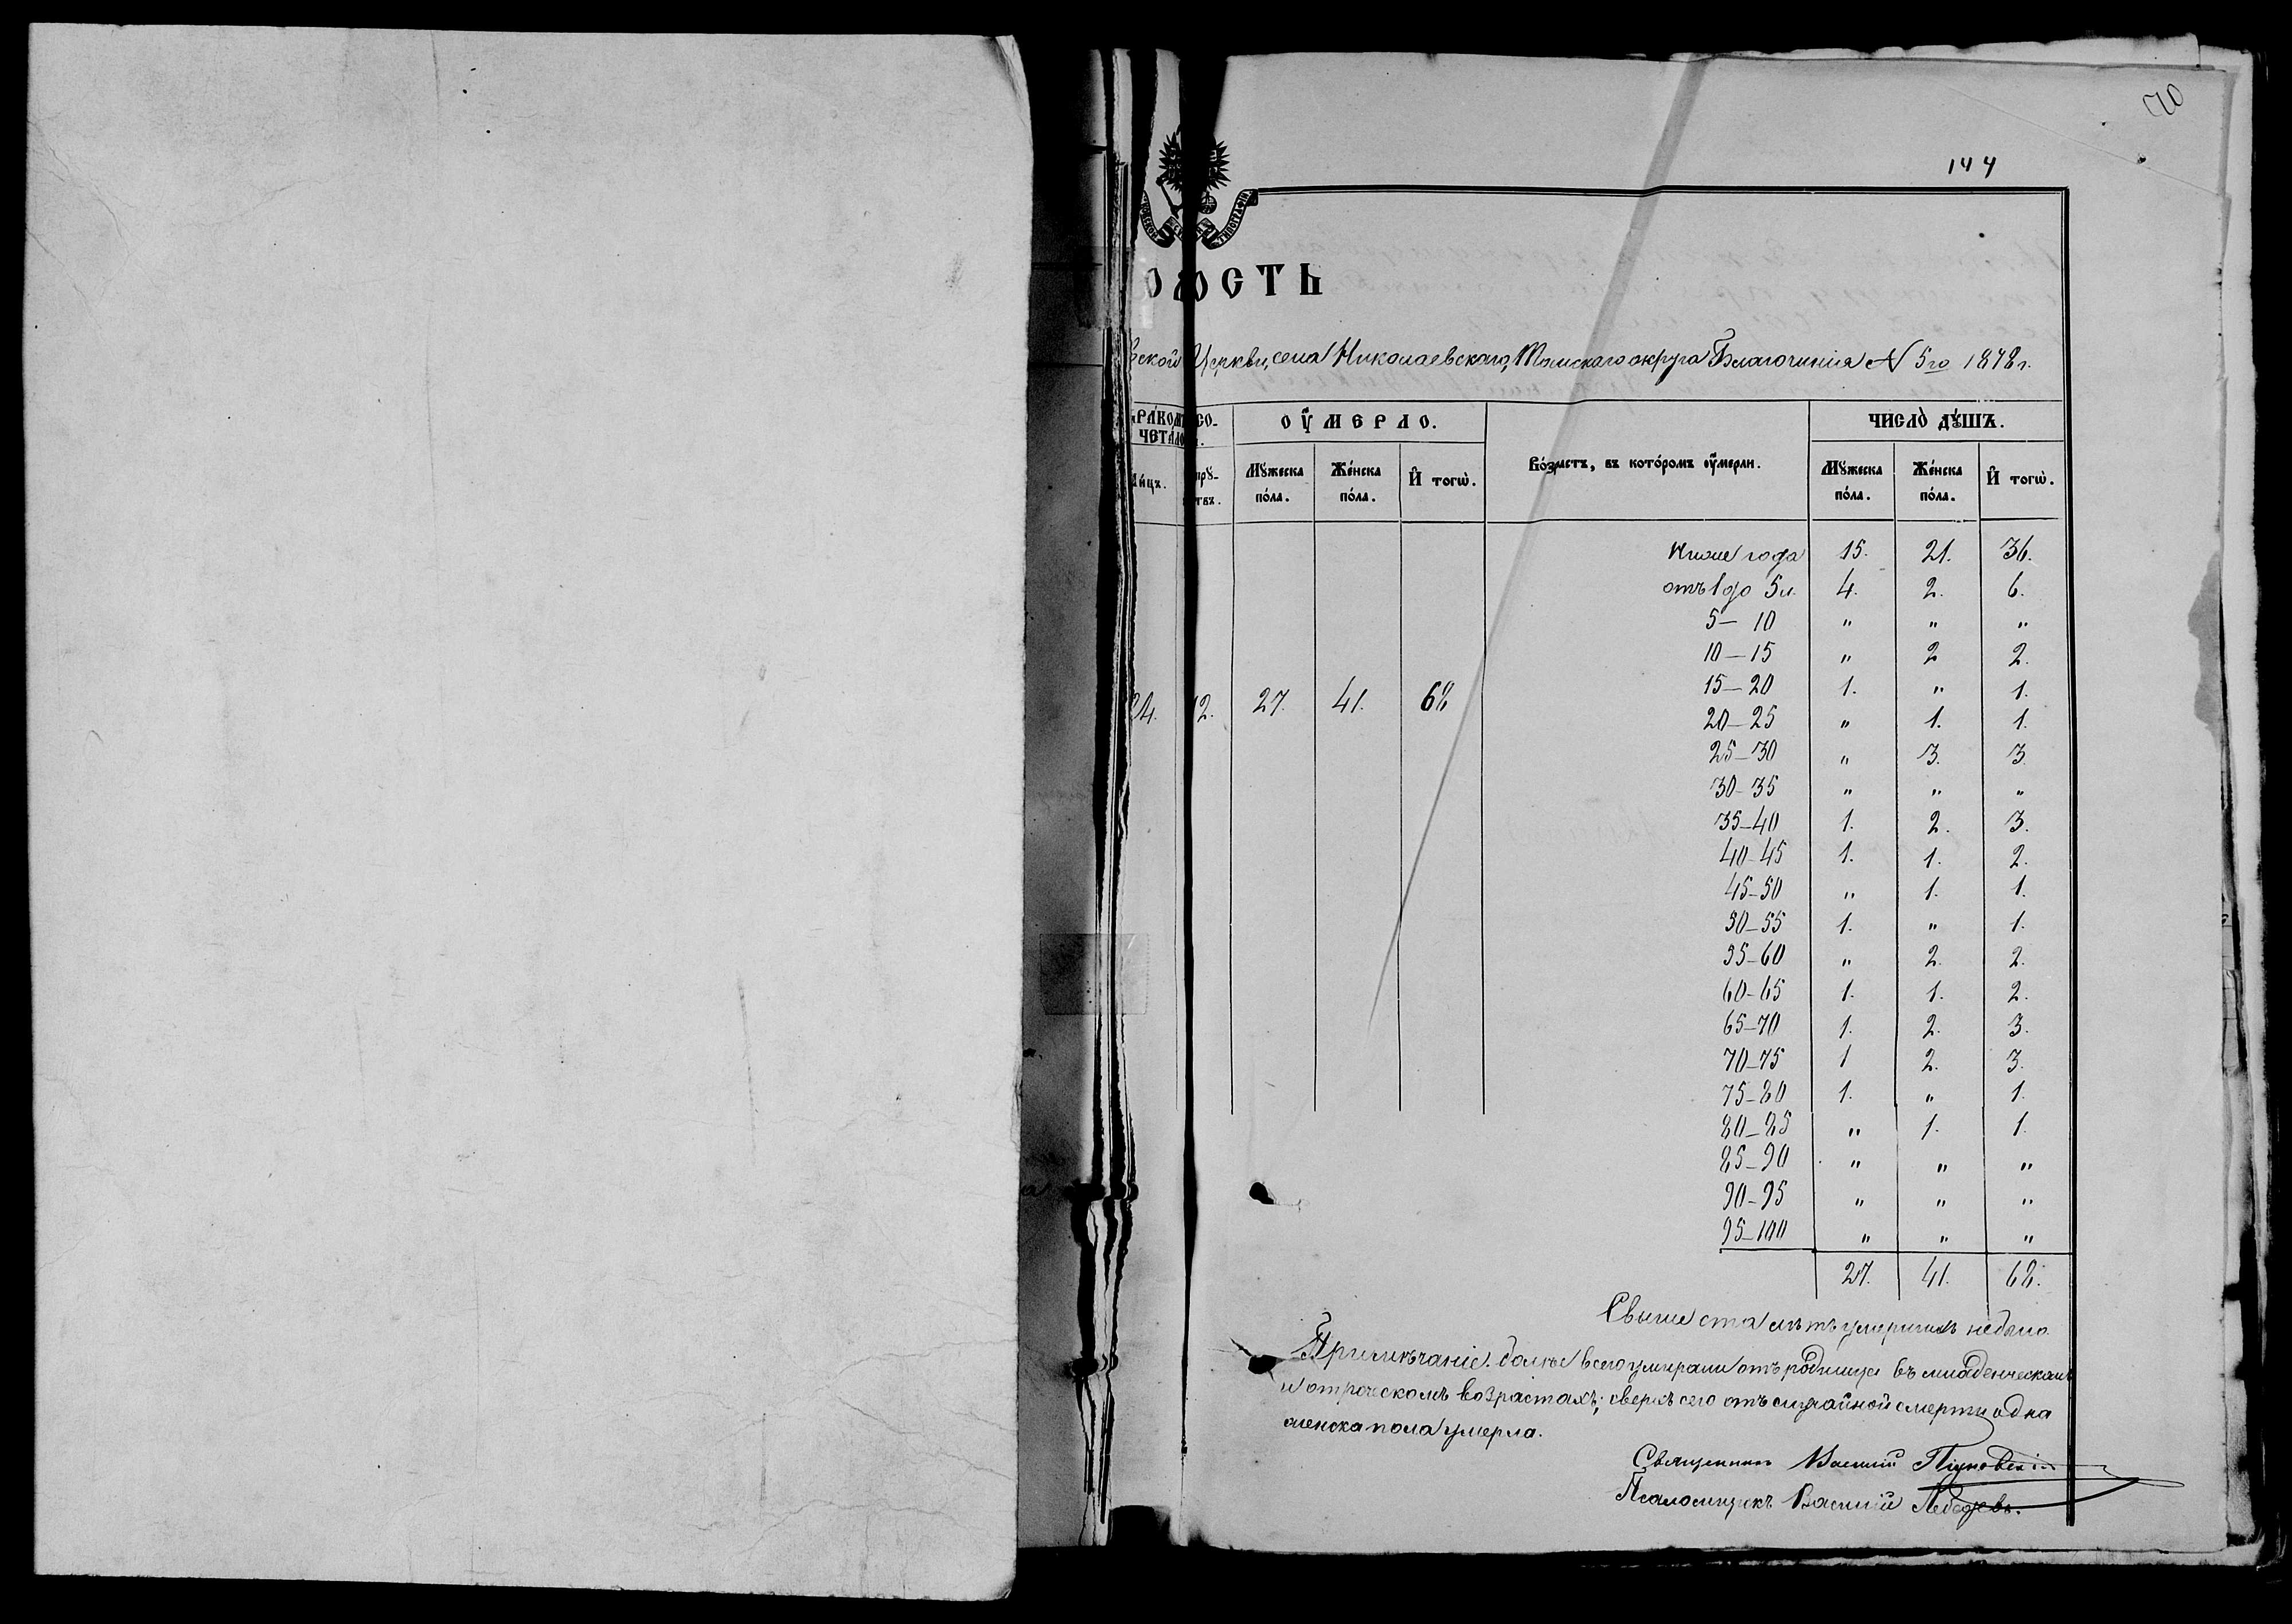 144
ОМОСТЬ
ской Церкви, села Николаевскаго, Томскаго округа Благочинія № 5го 1878 г.
БРАКОМЪ СО-
ЧЕТАЛОСЬ.
ОУМЕРЛО.
Возрастъ, въ которомъ оумерли.
ЧИСЛО ДУШЪ.
Мужеска пола.
Женска пола.
И того.
Мужеска пола.
Женска пола.
И того.
Ниже года 15. 21. 36.
отъ 1 до 5 л. 4. 2. 6.
5— 10 " " "
10—15 " 2 2.
15—20 1. " 1.
24. 12. 27. 41. 68
20—25 " 1. 1.
25—30 " 3. 3
30-35 " " "
35—40 1. 2. 3.
40-45 1. 1. 2.
45-50 " 1. 1.
50—55 1. " 1.
55-60 " 2. 2.
60-65 1. 1. 2.
65—70 1. 2. 3.
70—75 1 2. 3.
75-80 1. " 1.
80—85 " 1. 1.
85—90 " " "
90-95 " " "
95—100 " " "
27. 41. 68.
Свыше ста лѣтъ умершихъ небыло
Примѣчаніе. болѣе всего умирали отъ родимца въ младенческомъ
и отроческомъ возрастахъ; сверхъ сего отъ случайной смерти одна
женска пола умерла.
Священникъ Василій
Псаломщикъ Василій Лебедевъ.